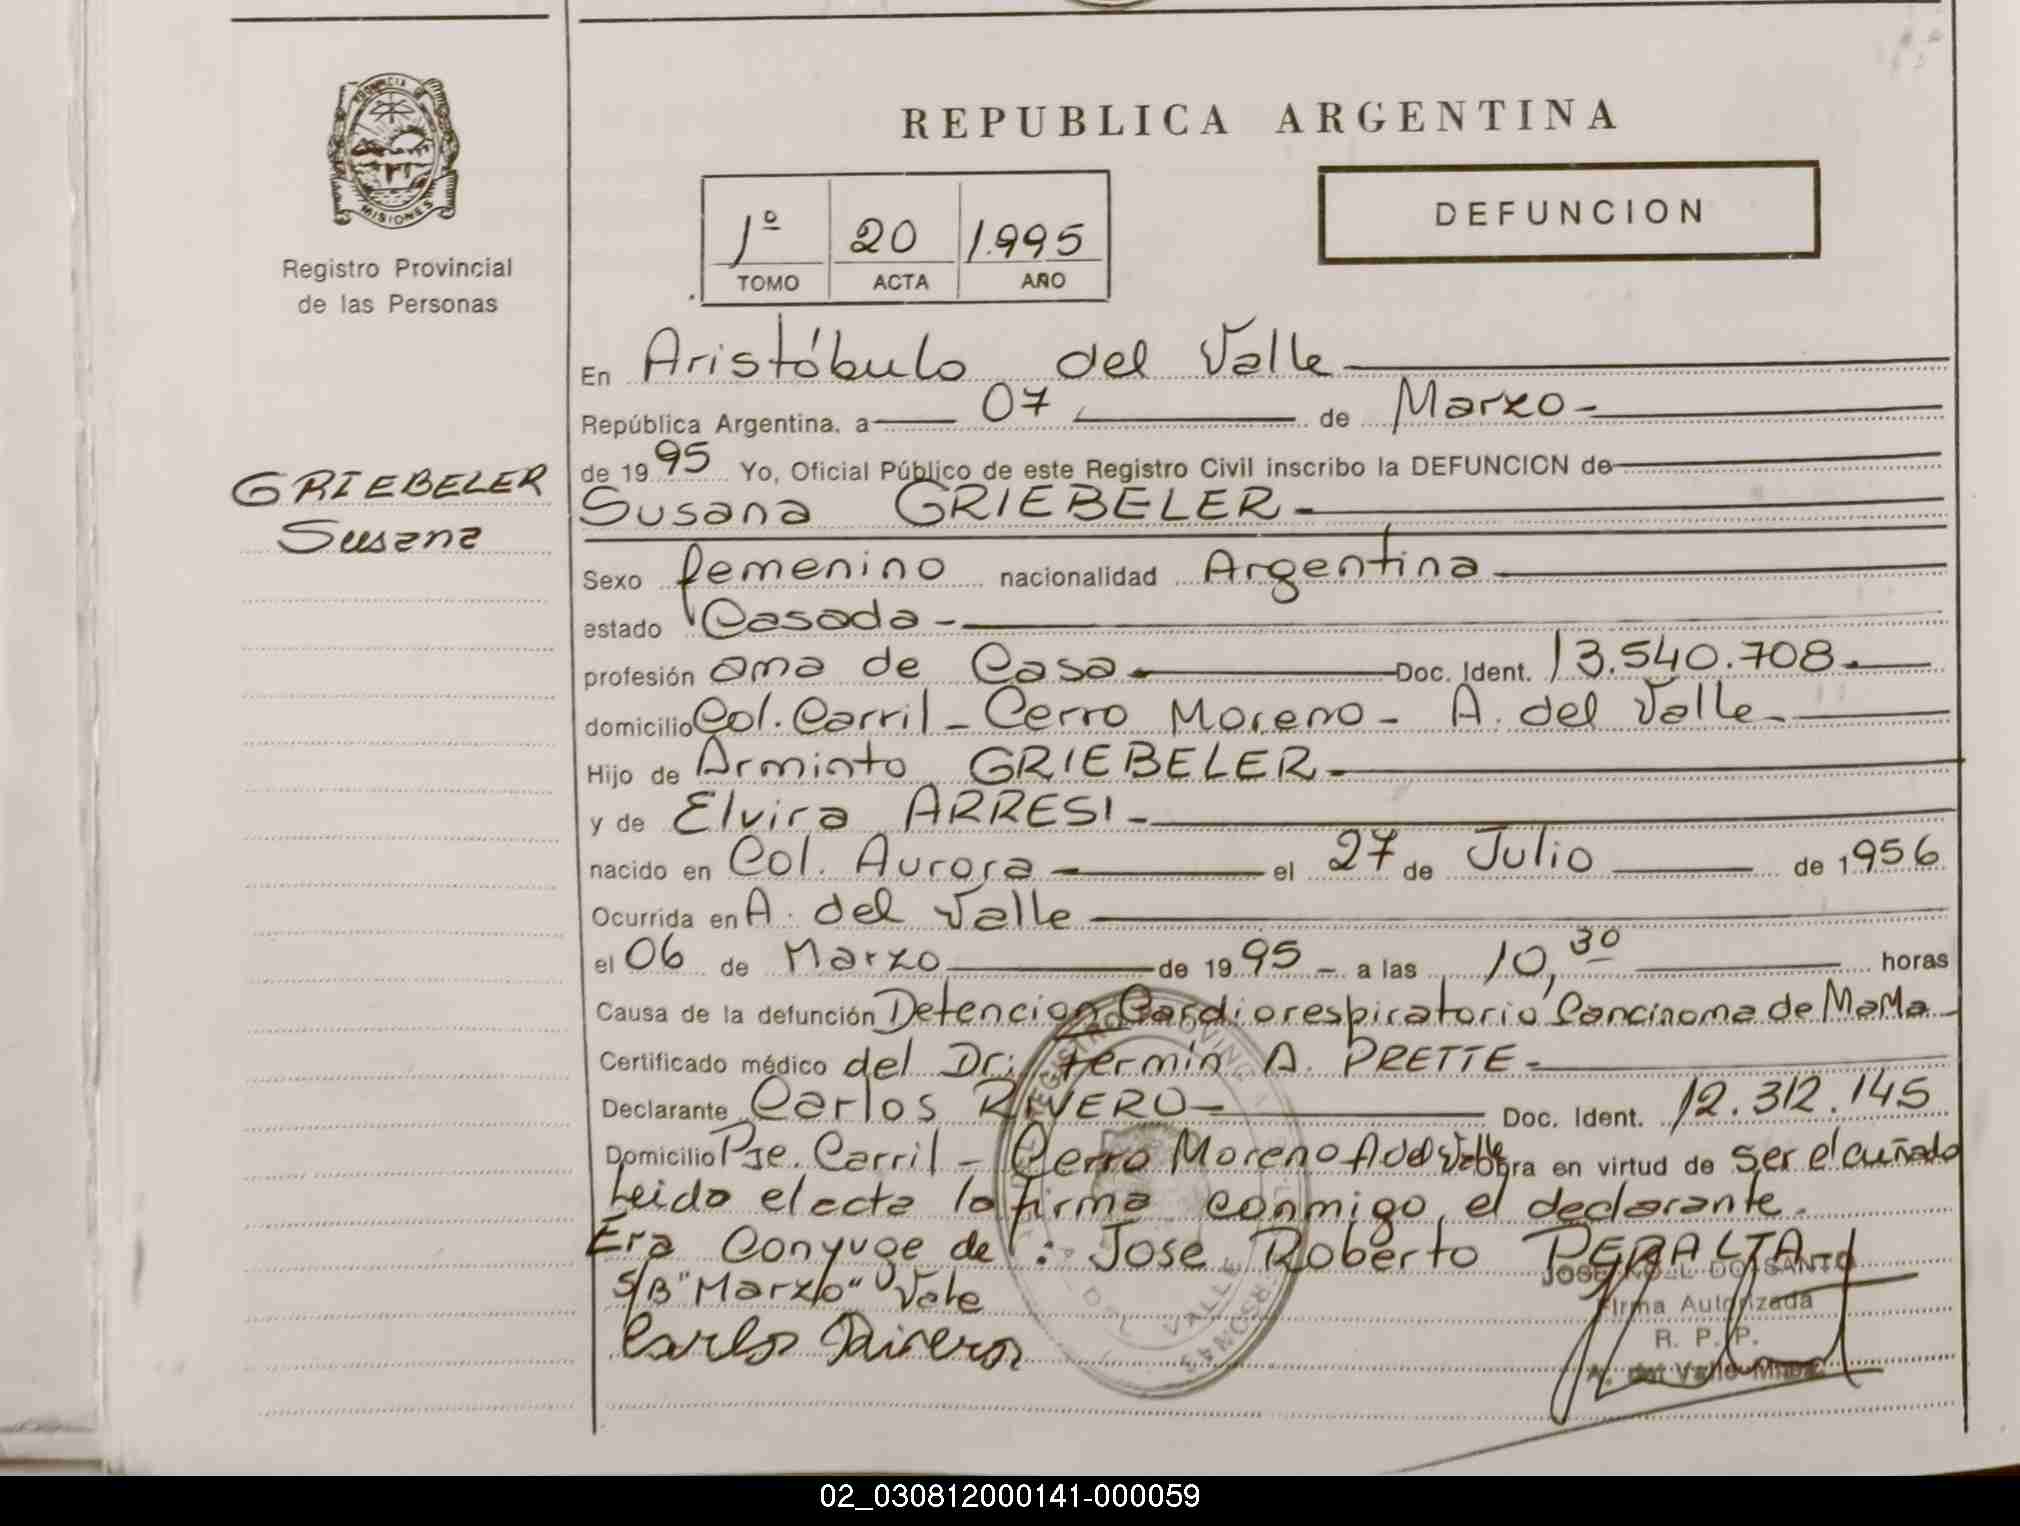 REPUBLICA ARGENTINA
PROVINCIA
MISIONES
Registro Provincial
de las Personas
1º 20 1.995
TOMO ACTA AÑO
DEFUNCION
GRIEBELER
Susana
En Aristóbulo del Valle
República Argentina, a 07 de Marzo
de 1995 Yo, Oficial Público de este Registro Civil inscribo la DEFUNCION de
Susana GRIEBELER
Sexo femenino nacionalidad Argentina
estado Casada
profesión ama de Casa Doc. Ident. 13.540.708
domicilio Col. Carril - Cerro Moreno - A. del Valle
Hijo de Arminto GRIEBELER
y de Elvira ARRESI
nacido en Col. Aurora el 27 de Julio de 1956
Ocurrida en A. del Valle
el 06 de Marzo de 1995 a las 10,30 horas
Causa de la defunción Detencion Cardiorespiratorio Carcinoma de MaMa
Certificado médico del Dr. Fermin A. PRETTE
Declarante Carlos RIVERO Doc. Ident. 12.312.145
Domicilio Pje. Carril - Cerro Moreno A del Valle obra en virtud de ser el cuñado
Leido el acta la firma conmigo, el declarante.
Era Conyuge de: Jose Roberto PERALTA
S/B "Marzo" Vale
Carlos Rivero
Firma Autorizada
R. P. P.
A. del Valle
02_030812000141-000059